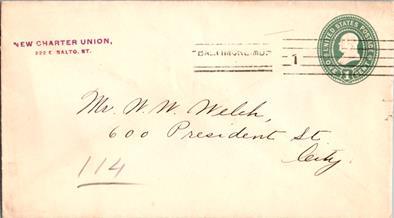 NEW CHARTER UNION,
222 E. BALTO. ST.
BALTIMORE, MD.
1
UNITED STATES POSTAGE
Mr. W. W. Welch,
600 President St
City.
114